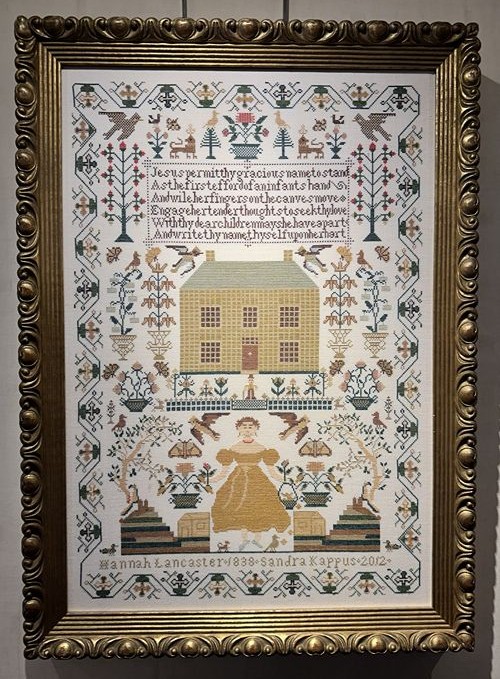 Jesus permit thy gracious name to stand
As the first efford of an infants hand
And wile her fingers on the canves move
Engage her tender thoughts to seek thy love
With thy dear children may she have a part
And write thy name thyself upon her hart
Hannah Lancaster 1838 Sandra Kappus 2012